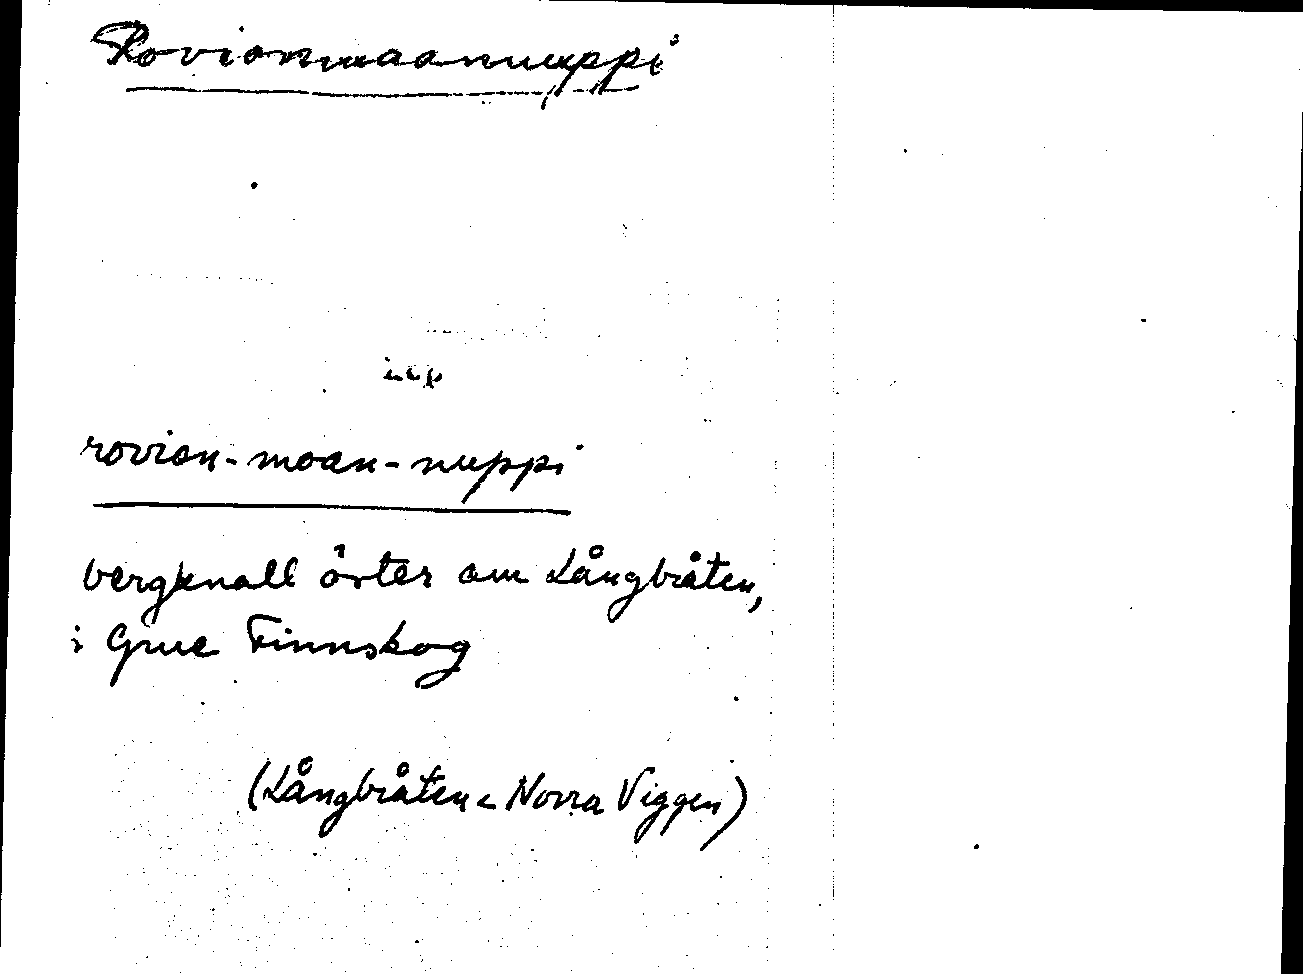 Rovionmaannuppi
rovion-moan-nuppi
bergknall öster om Långbråten,
i Grue Finnskog
(Långbråten < Norra Viggen)